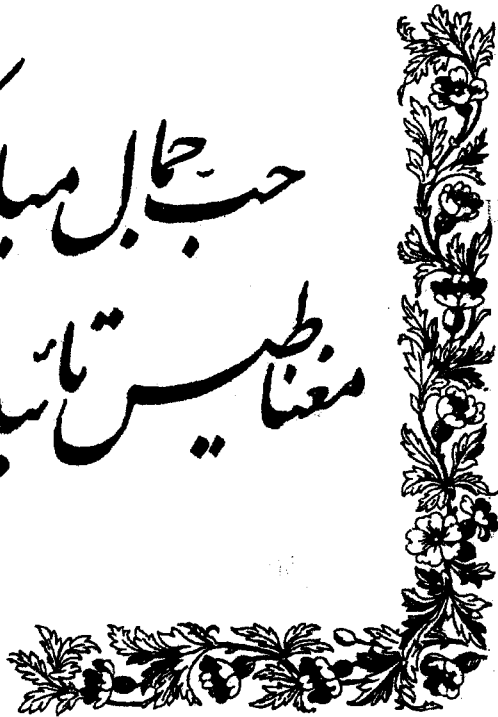 حب جمال مبا
مغناطیس تائید